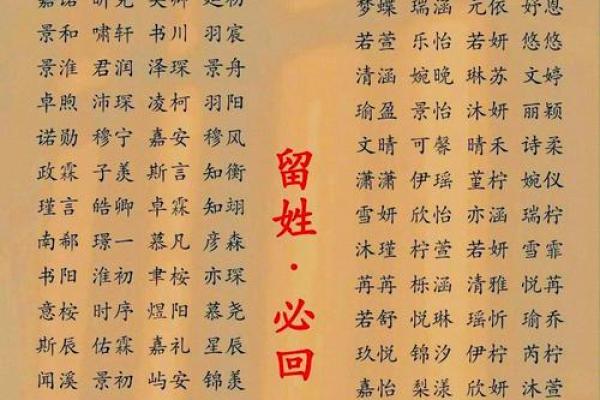 景和 啸轩 书川 羽宸
景淮 君润 泽琛 景舟
卓煦 沛琛 凌柯 羽阳
诺勋 穆宁 嘉安 穆风
政霖 子羡 斯言 知衡
瑾言 皓卿 卓霖 知翊
南郗 璟一 慕凡 彦森
书阳 淮初 聿桉 亦琛
意桉 时序 煜阳 慕尧
斯辰 佑霖 嘉礼 星辰
闻溪 景初 屿安 锦羡
留姓·必回
梦蝶 瑞涵 元依 妤恩
若萱 乐怡 若妍 悠悠
清涵 婉晚 琳苏 文婷
瑜盈 景怡 沐妍 丽颖
文晴 可馨 晴禾 诗柔
潇潇 伊瑶 堇柠 婉仪
雪妍 欣怡 亦涵 瑞柠
沐瑾 柠萱 若妍 雪霏
苒苒 栎涵 清雅 悦苒
若舒 悦琳 瑶忻 瑜乔
玖悦 锦汐 伊柠 芮柠
嘉怡 梨漾 欣妍 沐萱